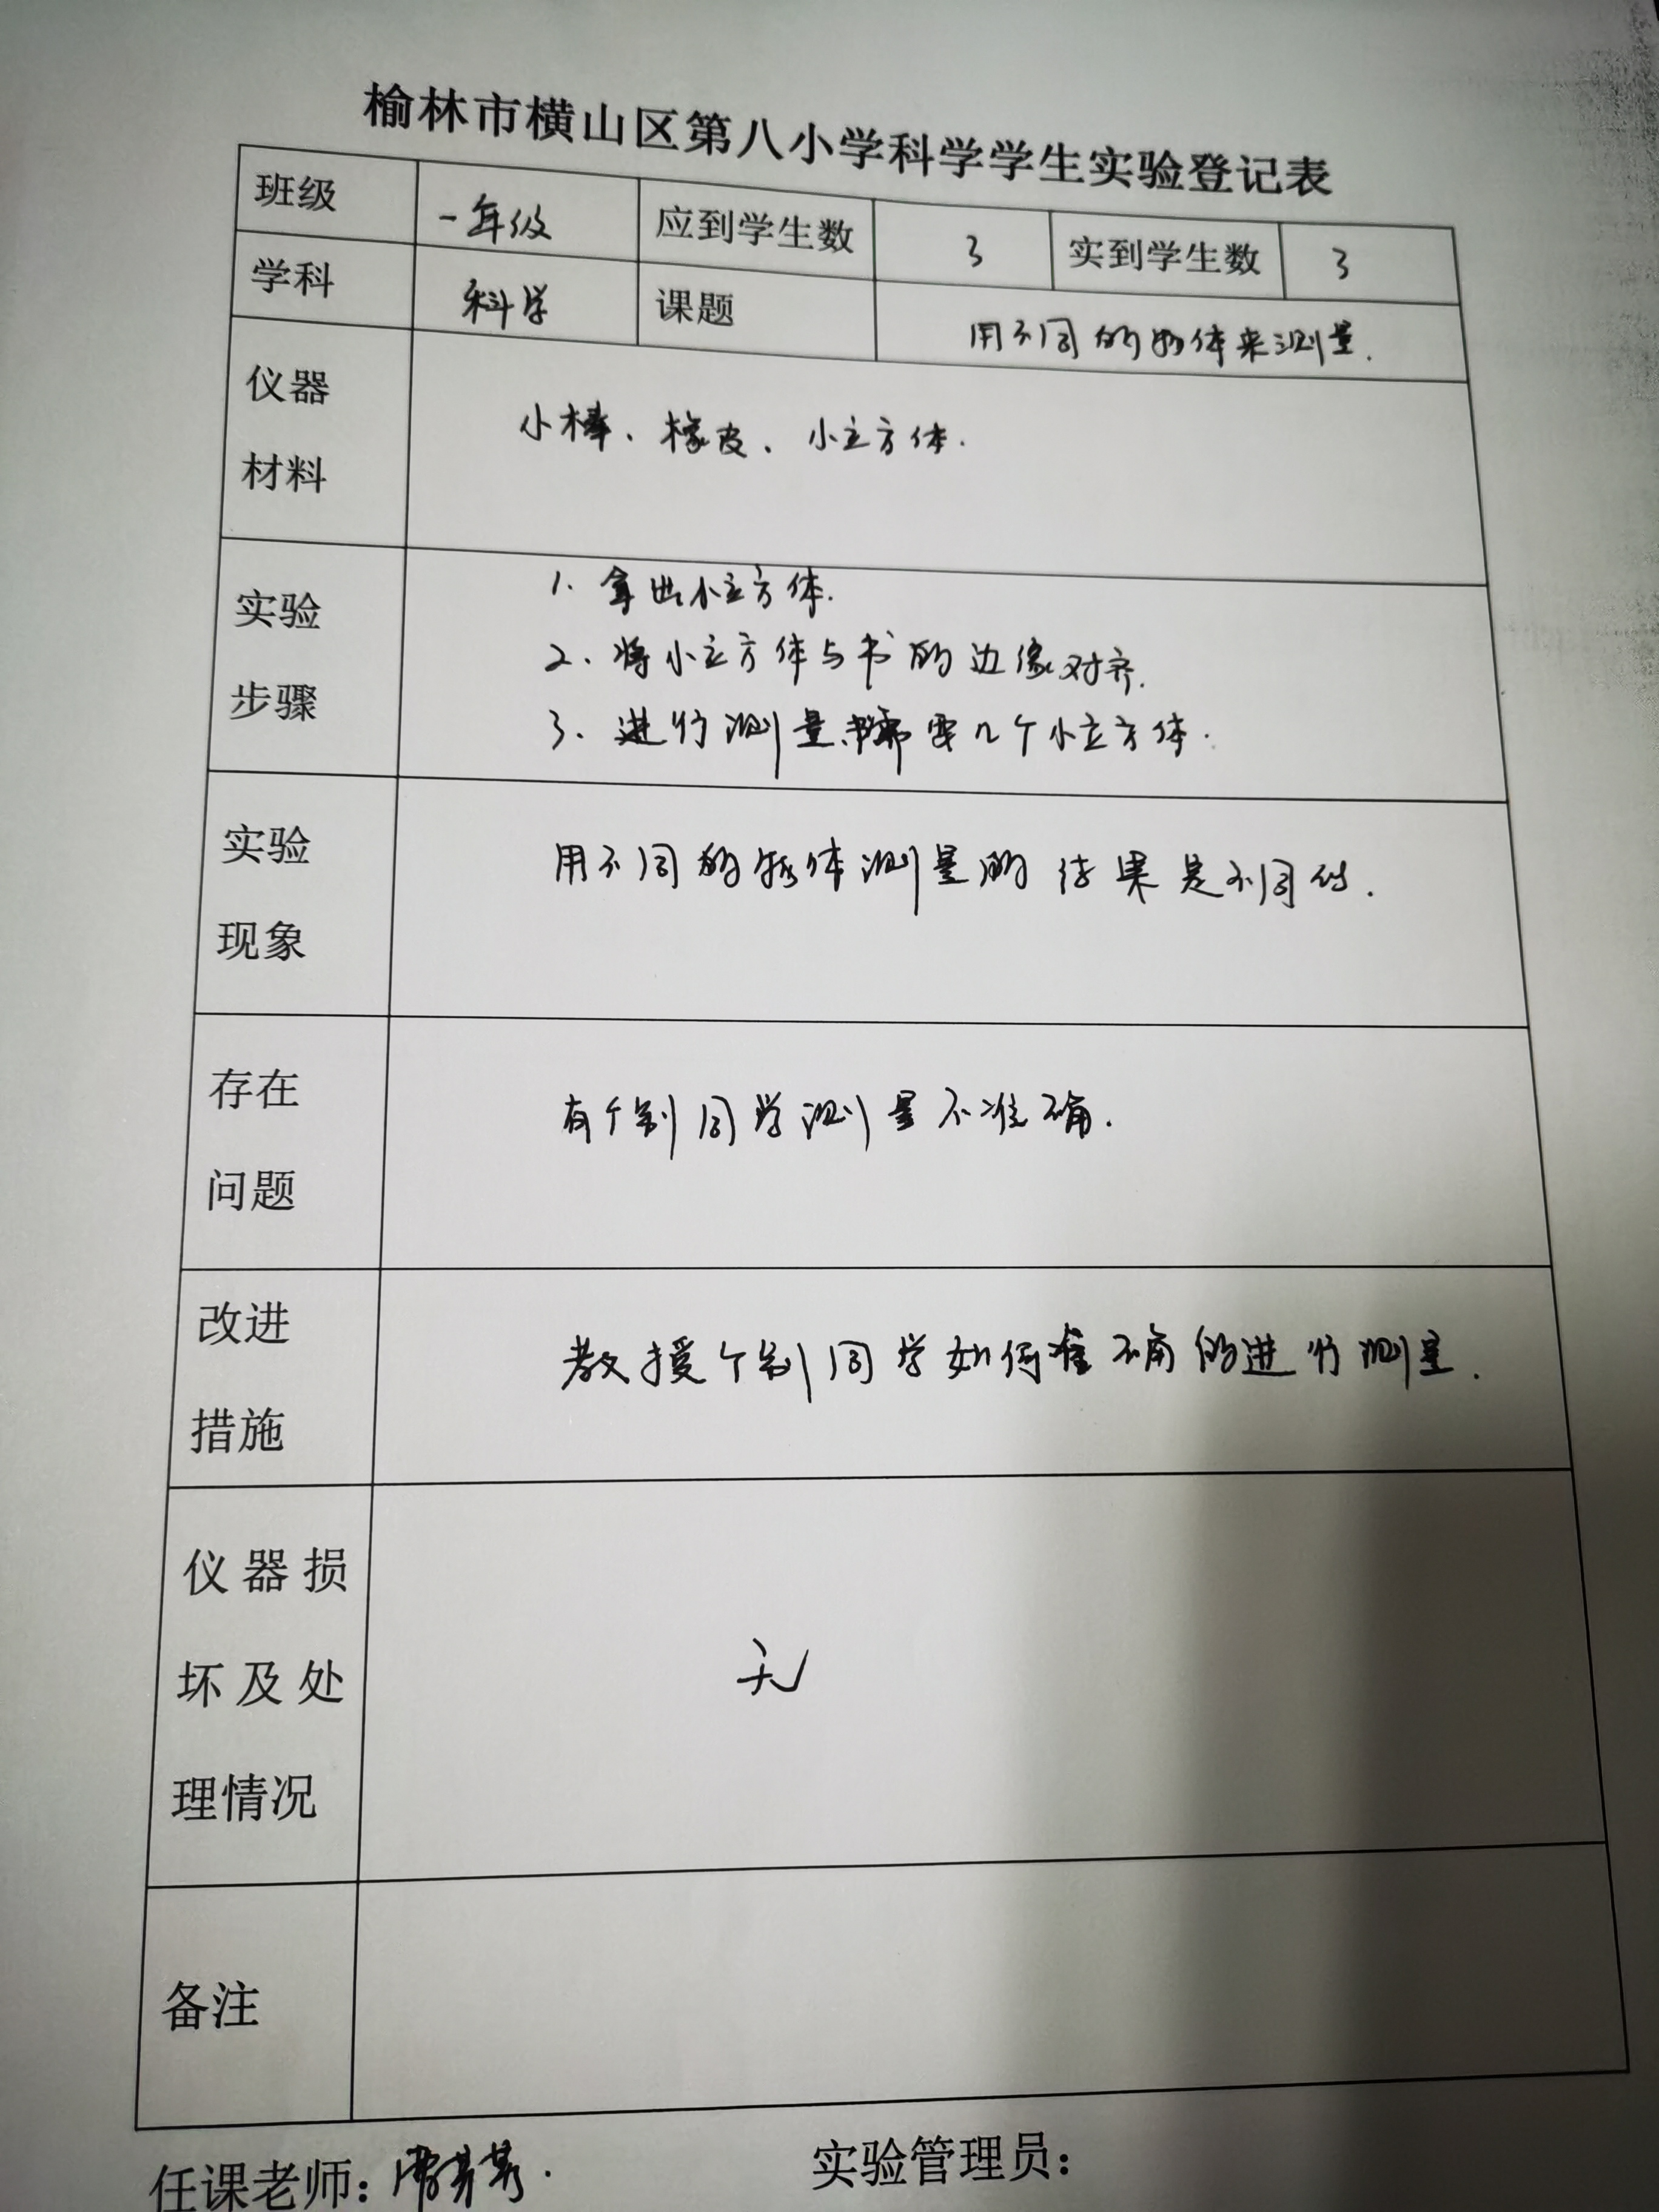 榆林市横山区第八小学科学学生实验登记表
班级 一年级 应到学生数 3 实到学生数 3
学科 科学 课题 用不同的物体来测量.
仪器
材料
小棒、橡皮、小立方体.
实验
步骤
1、拿出小立方体.
2、将小立方体与书的边缘对齐.
3、进行测量需要几个小立方体.
实验
现象
用不同的物体测量的结果是不同的.
存在
问题
有个别同学测量不准确.
改进
措施
教授个别同学如何准确的进行测量.
仪器损
坏及处
理情况
无
备注
任课老师: 实验管理员: